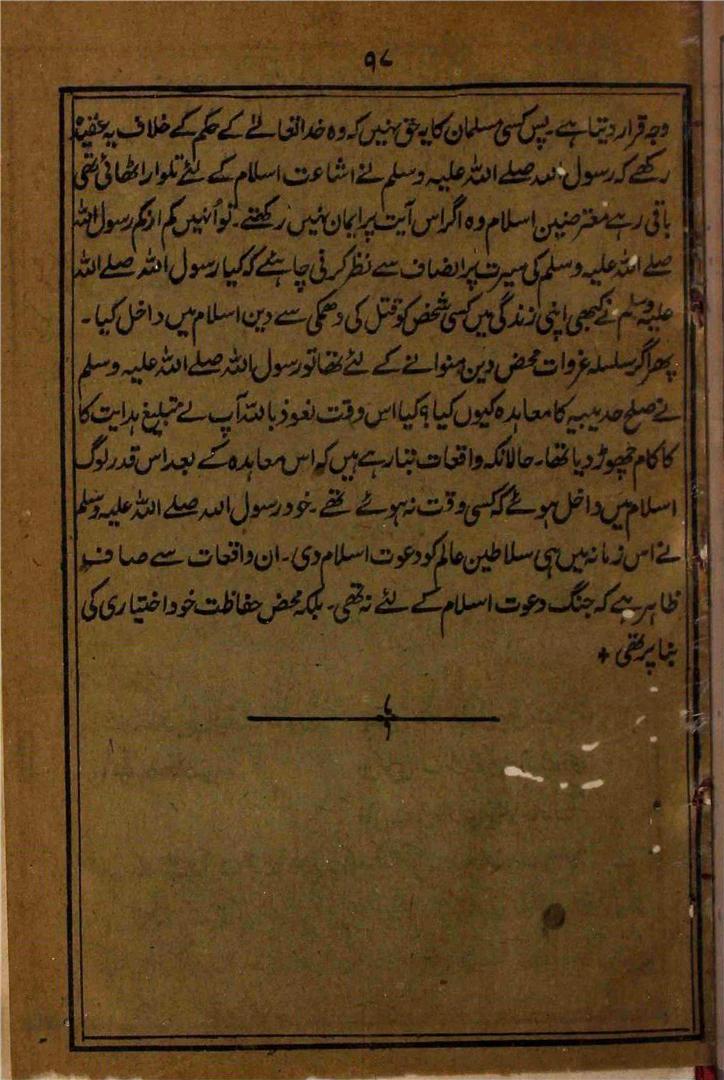 ۹۷
وجہ قرار دیتا ہے۔ پس کسی مسلمان کا یہ حق نہیں کہ وہ خدا تعالےٰ کے حکم کے خلاف یہ عقیدہ
رکھے کہ رسول اللہ صلے اللہ علیہ وسلم نے اشاعت اسلام کے لئے تلوار اٹھائی تھی
باقی رہے معترضین اسلام وہ اگر اس آیت پر ایمان نہیں رکھتے۔ تو اُنہیں کم ازکم رسول اللہ
صلے اللہ علیہ وسلم کی سیرت پر انصاف سے نظر کرنی چاہئے کہ کیا رسول اللہ صلے اللہ
علیہ وسلم نے کبھی اپنی زندگی میں کسی شخص کو قتل کی دھمکی سے دین اسلام میں داخل کیا۔
پھر اگر سلسلہ غزوات محض دین منوانے کے لئے تھا تو رسول اللہ صلے اللہ علیہ وسلم
نے صلح حدیبیہ کا معاہدہ کیوں کیا؟ کیا اس وقت نعوذ باللہ آپ نے تبلیغ ہدایت کا
کا کام چھوڑ دیا تھا۔ حالانکہ واقعات بتا رہے ہیں کہ اس معاہدہ کے بعد اس قدر لوگ
اسلام میں داخل ہوئے کہ کسی وقت نہ ہوئے تھے۔ خود رسول اللہ صلے اللہ علیہ وسلم
نے اس زمانہ میں ہی سلاطین عالم کو دعوت اسلام دی۔ ان واقعات سے صاف
ظاہر ہے کہ جنگ دعوت اسلام کے لئے نہ تھی۔ بلکہ محض حفاظت خود اختیاری کی
بنا پر تھی +